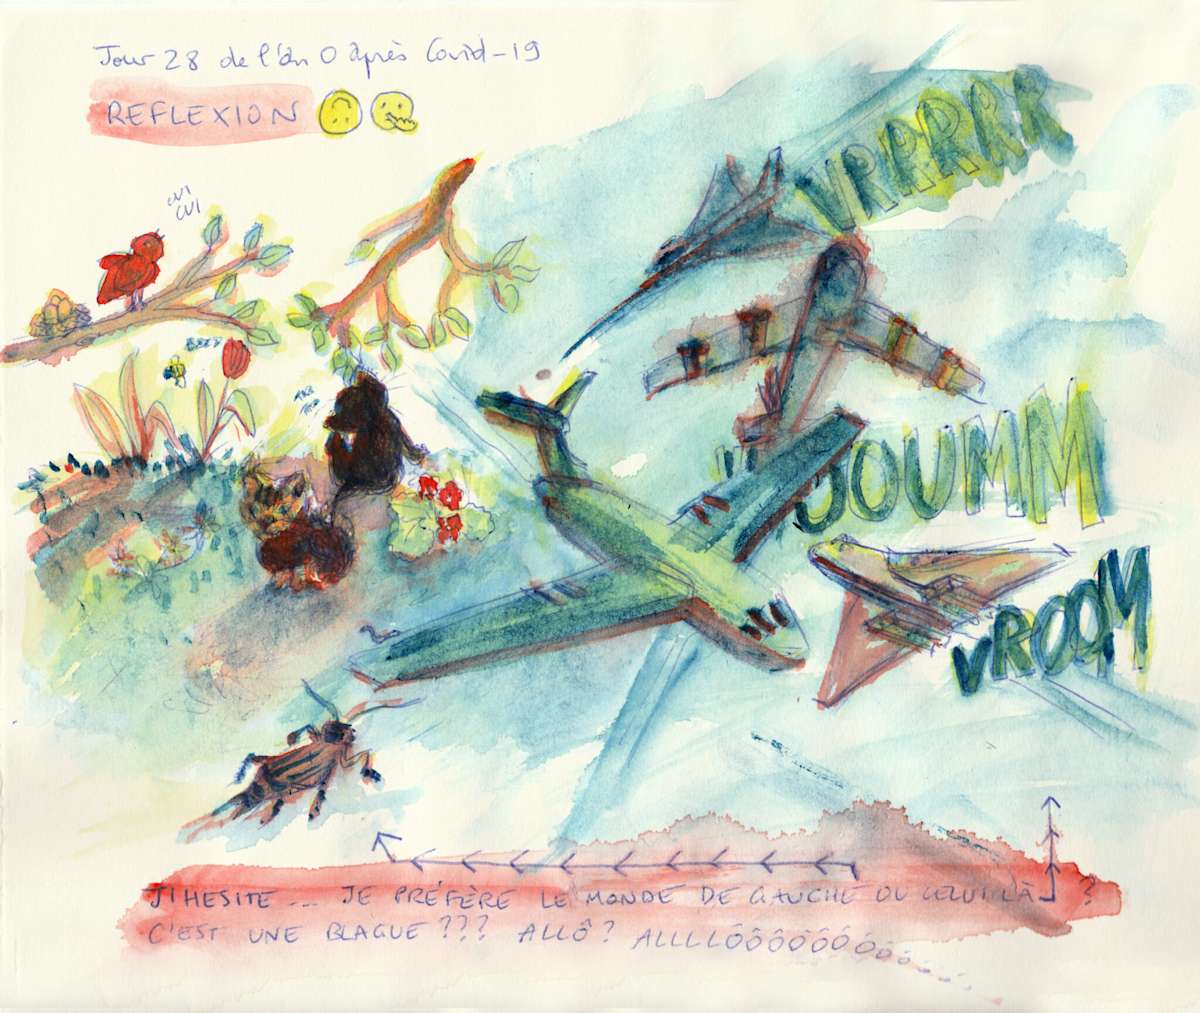 Jour 28 de l'an 0 après Covid-19
REFLEXION
CUI
CUI
BZZZ
VRRRRR
JOUMM
VROOM
J'HESITE ... JE PRÉFÈRE LE MONDE DE GAUCHE OU CELUI LÀ ?
C'EST UNE BLAGUE ??? ALLÔ? ALLLLÔÔÔÔÔÔÔÔÔ